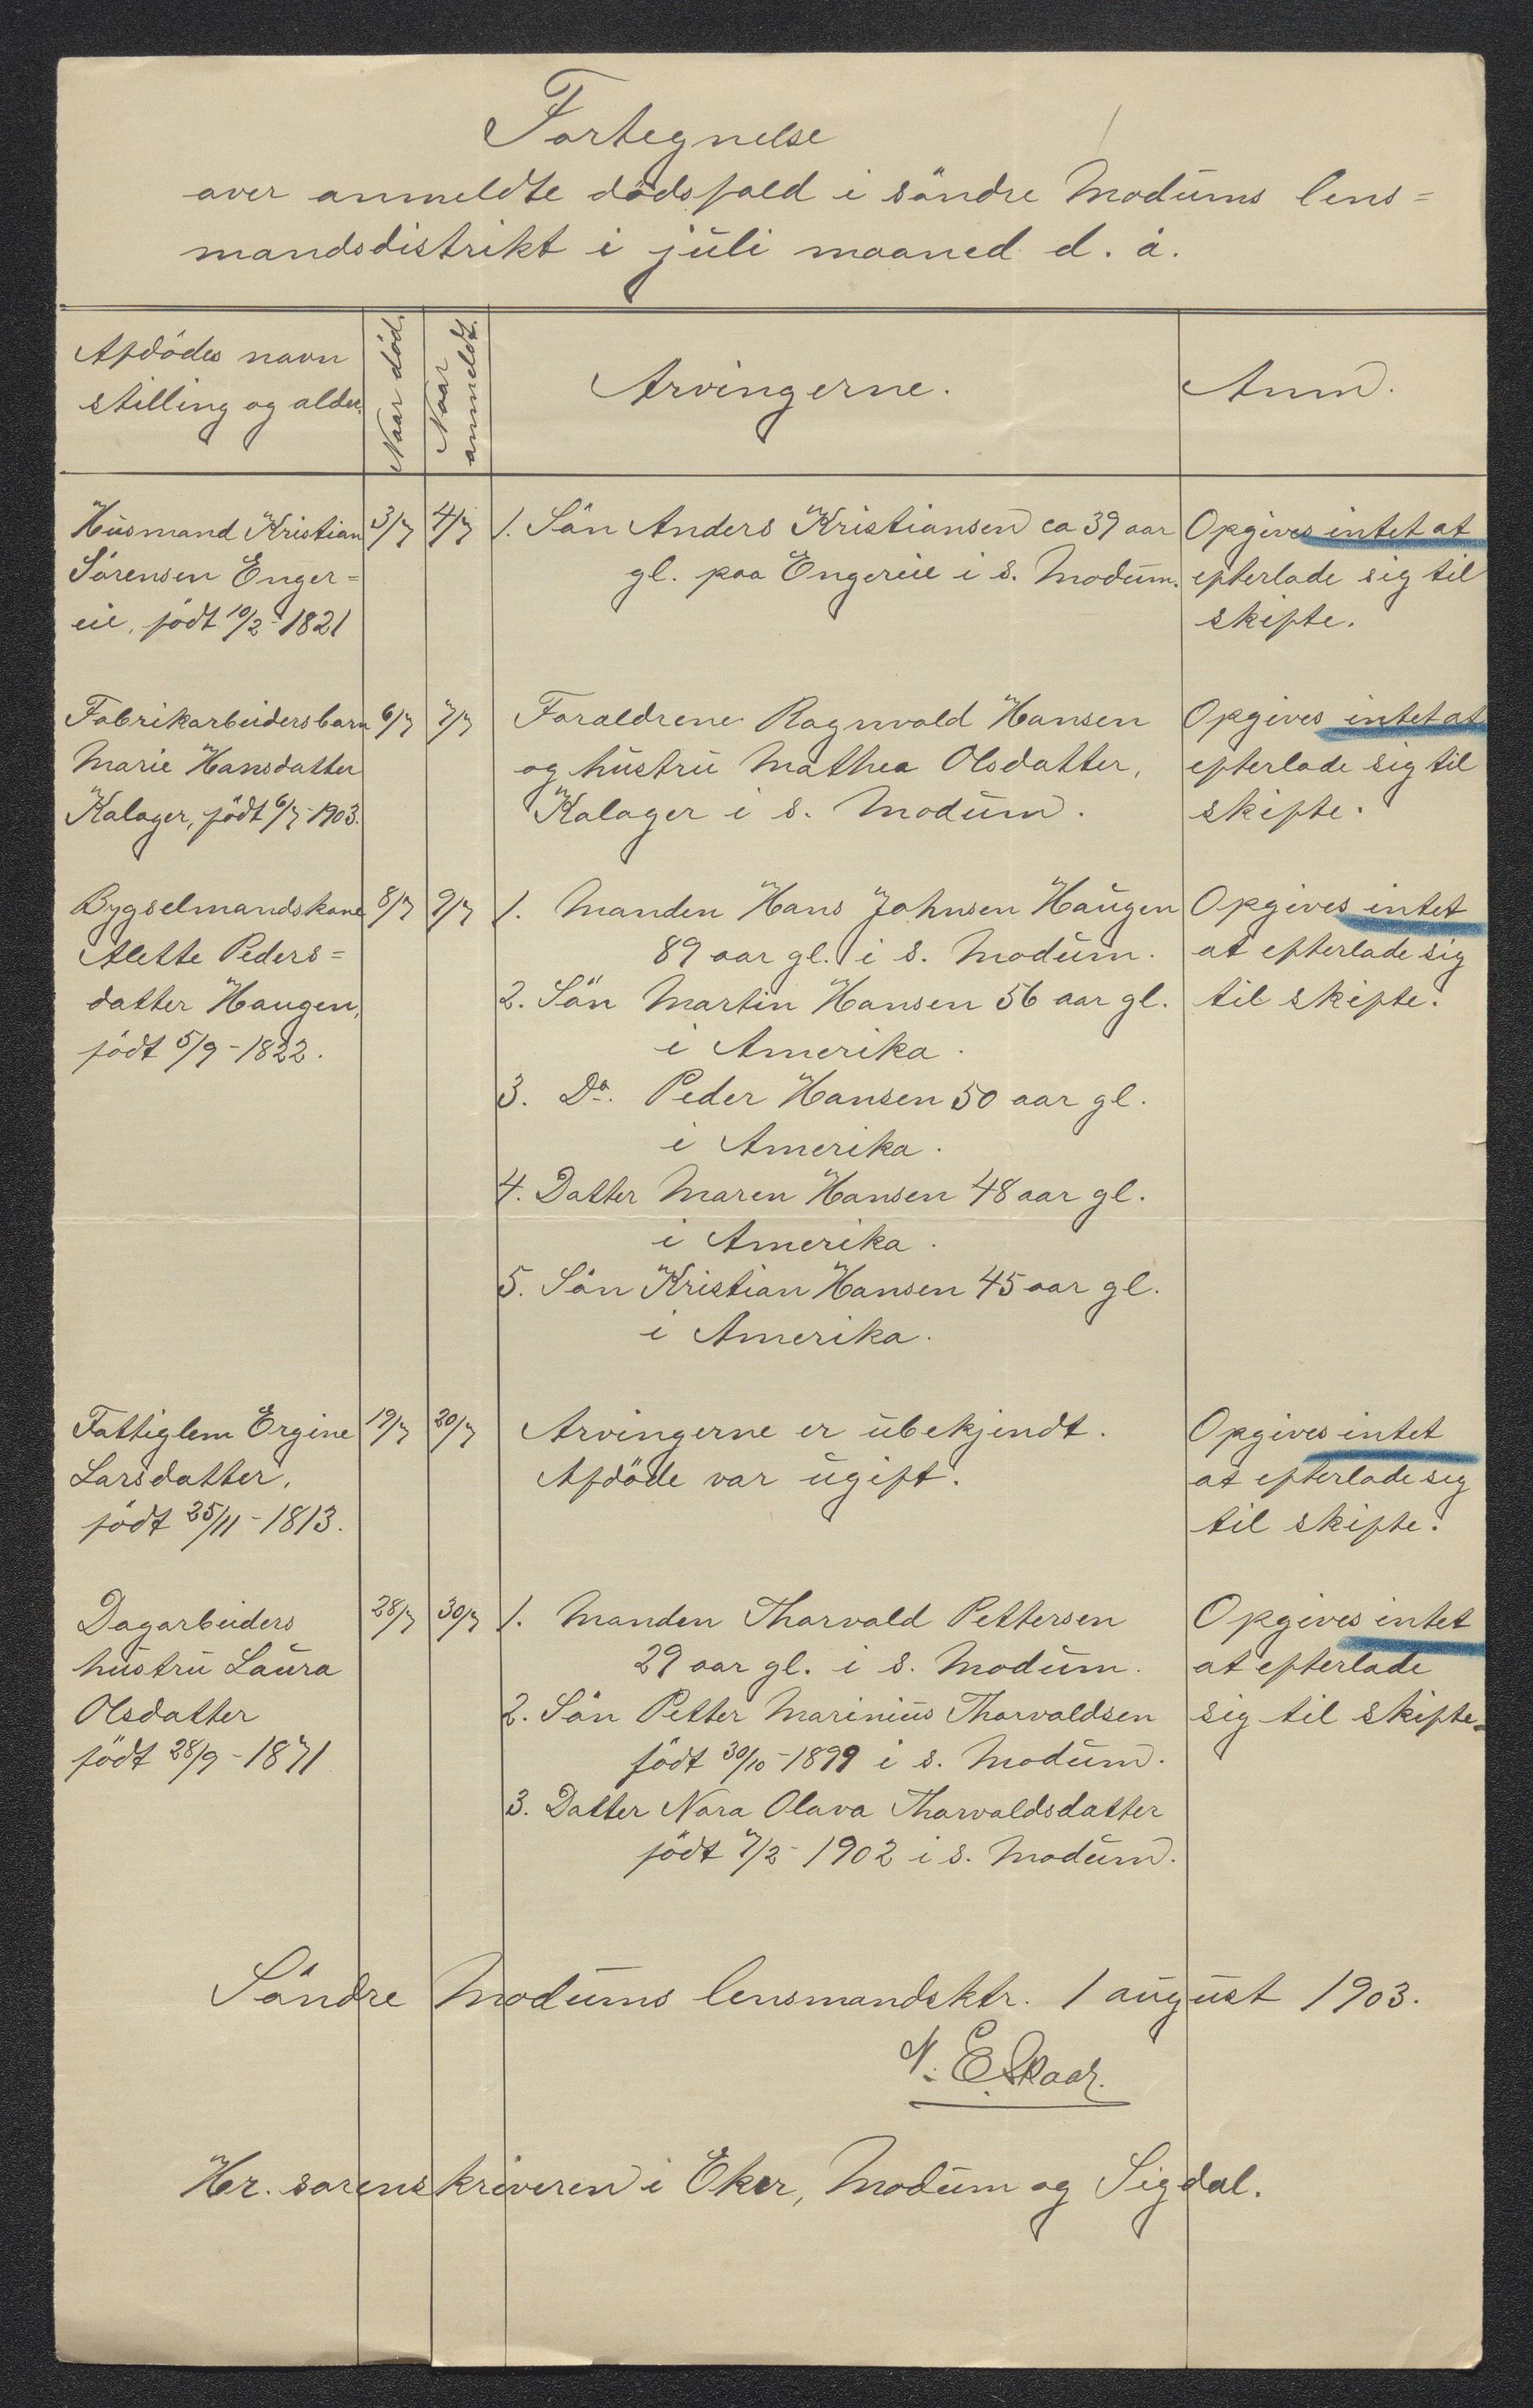 Fortegnelse
over anmeldte dödsfald i söndre Modums lens=
mandsdistrikt i juli maaned d. å.
Afdödes navn
stilling og alder.
Naar död.
Naar
anmeldt.
Arvingerne.
Anm.
Husmand Kristian
Sörensen Enger=
eie, födt 10/2-1821
3/7
4/7
1. Sön Anders Kristiansen ca 39 aar
gl. paa Engereie i s. Modum.
Opgives intet at
efterlade sig til
skifte.
Fabrikarbeidersbarn
Marie Hansdatter
Kalager, födt 6/7-1903.
6/7
7/7
Foraeldrene Ragnvald Hansen
og hustru Mathea Olsdatter,
Kalager i s. Modum.
Opgives intet at
efterlade sig til
skifte.
Bygselmandskone
Alette Peders=
datter Haugen,
födt 5/9-1822.
8/7
9/7
1. Manden Hans Johnsen Haugen
89 aar gl. i s. Modum.
2. Sön Martin Hansen 56 aar gl.
i Amerika.
3. Do. Peder Hansen 50 aar gl.
i Amerika.
4. Datter Maren Hansen 48 aar gl.
i Amerika.
5. Sön Kristian Hansen 45 aar gl.
i Amerika.
Opgives intet
at efterlade sig
til skifte.
Fattiglem Ergine
Larsdatter,
födt 25/11-1813.
19/7
20/7
Arvingerne er ubekjendt.
Afdöde var ugift.
Opgives intet
at efterlade sig
til skifte.
Dagarbeiders
hustru Laura
Olsdatter
födt 28/9-1871
28/7
30/7
1. Manden Thorvald Pettersen
29 aar gl. i s. Modum.
2. Sön Petter Marinius Thorvaldsen
födt 30/10-1899 i s. Modum.
3. Datter Nora Olava Thorvaldsdatter
födt 7/2-1902 i s. Modum.
Opgives intet
at efterlade
sig til skifte.
Söndre Modums lensmandsktr. 1 august 1903.
N. E. Skaar.
Hr. sorenskriveren i Eker, Modum og Sigdal.